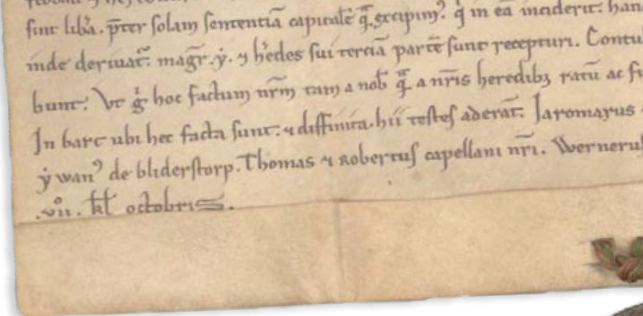 sint libera. pret solam sententiā capitalē q̄ excipim᾿. q̄ in eā inciderit. han
inde deriuat᾿. magr̄. ẏ. ⁊ h̓edes sui terciā partē sunt recepturi. Contu
bunt. Vt g̊ hoc factum nr̄m tam a nob̄ q̄ a nr̄is heredibꝫ ratū ac fi
In barc ubi hec facta sunt. ⁊ diffinita. hii testes aderāt. Jaromarus
ẏwan᾿ de bliderstorp. Thomas ⁊ Robertus capellani nr̄i. Werneru
.vii. kl̄ octobris.